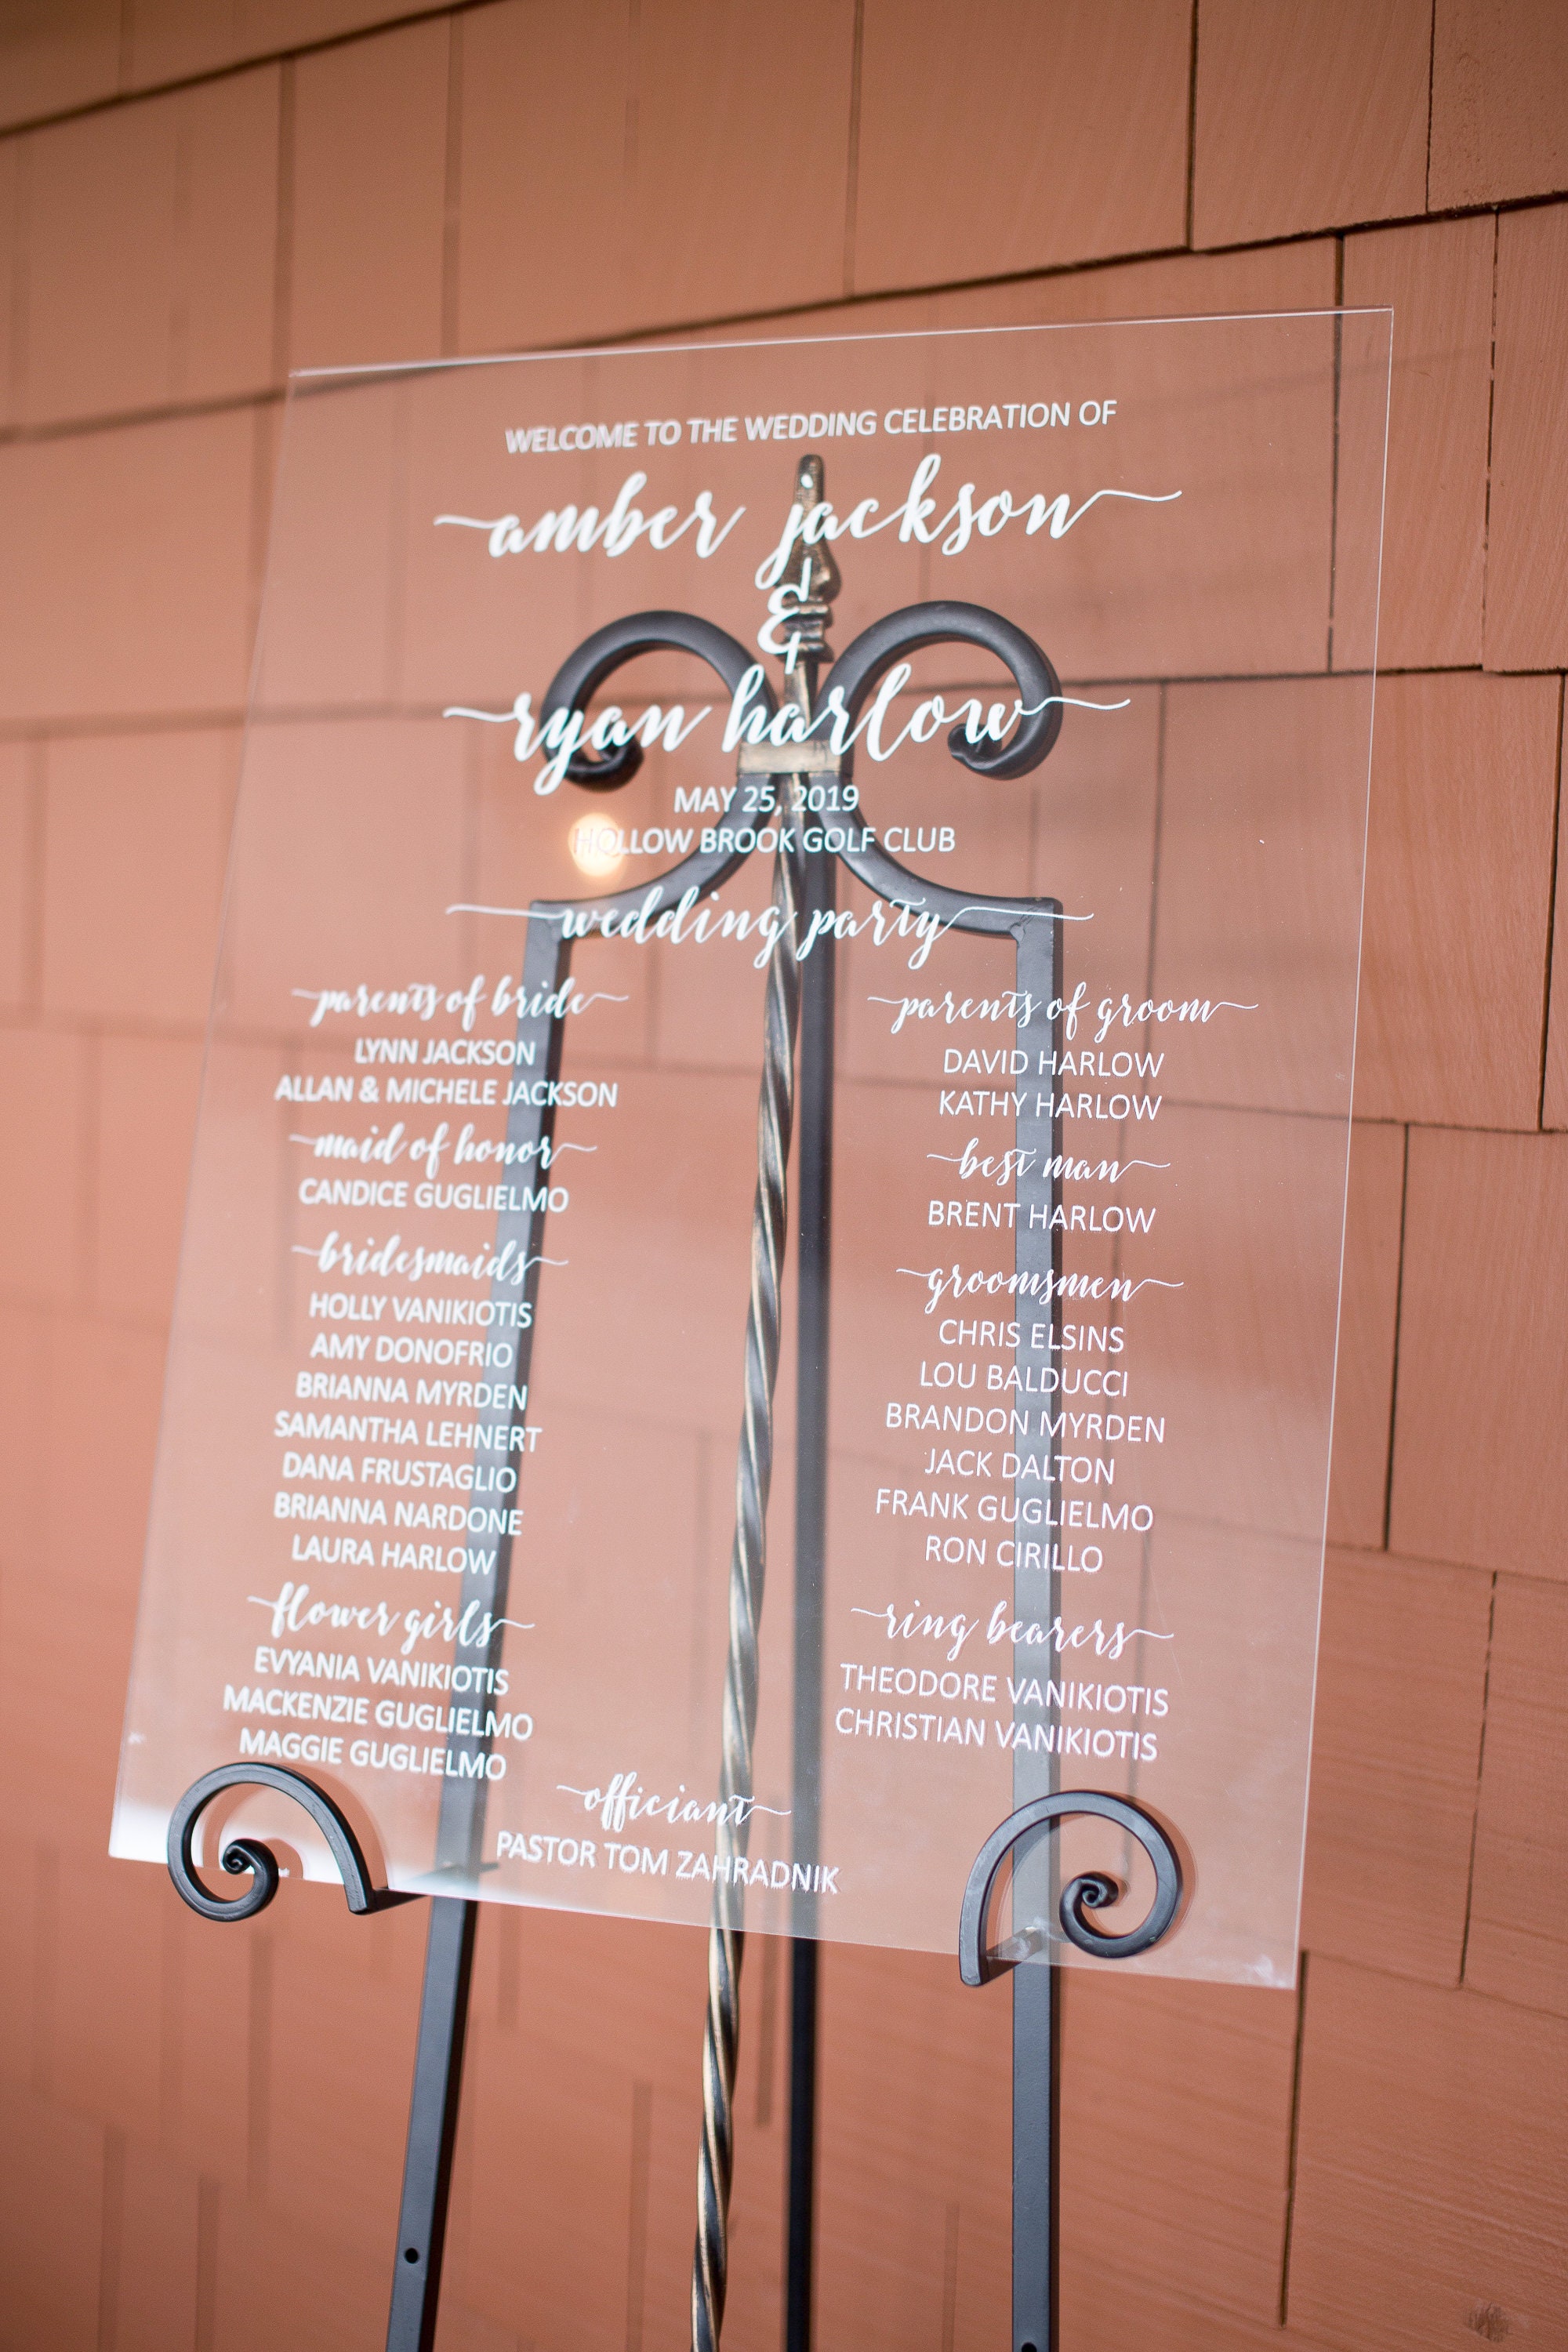 WELCOME TO THE WEDDING CELEBRATION OF
amber jackson
&
ryan harlow
MAY 25, 2019
HOLLOW BROOK GOLF CLUB
wedding party
parents of bride
LYNN JACKSON
ALLAN & MICHELE JACKSON
maid of honor
CANDICE GUGLIELMO
bridesmaids
HOLLY VANIKIOTIS
AMY DONOFRIO
BRIANNA MYRDEN
SAMANTHA LEHNERT
DANA FRUSTAGLIO
BRIANNA NARDONE
LAURA HARLOW
flower girls
EVYANIA VANIKIOTIS
MACKENZIE GUGLIELMO
MAGGIE GUGLIELMO
parents of groom
DAVID HARLOW
KATHY HARLOW
best man
BRENT HARLOW
groomsmen
CHRIS ELSINS
LOU BALDUCCI
BRANDON MYRDEN
JACK DALTON
FRANK GUGLIELMO
RON CIRILLO
ring bearers
THEODORE VANIKIOTIS
CHRISTIAN VANIKIOTIS
officiant
PASTOR TOM ZAHRADNIK